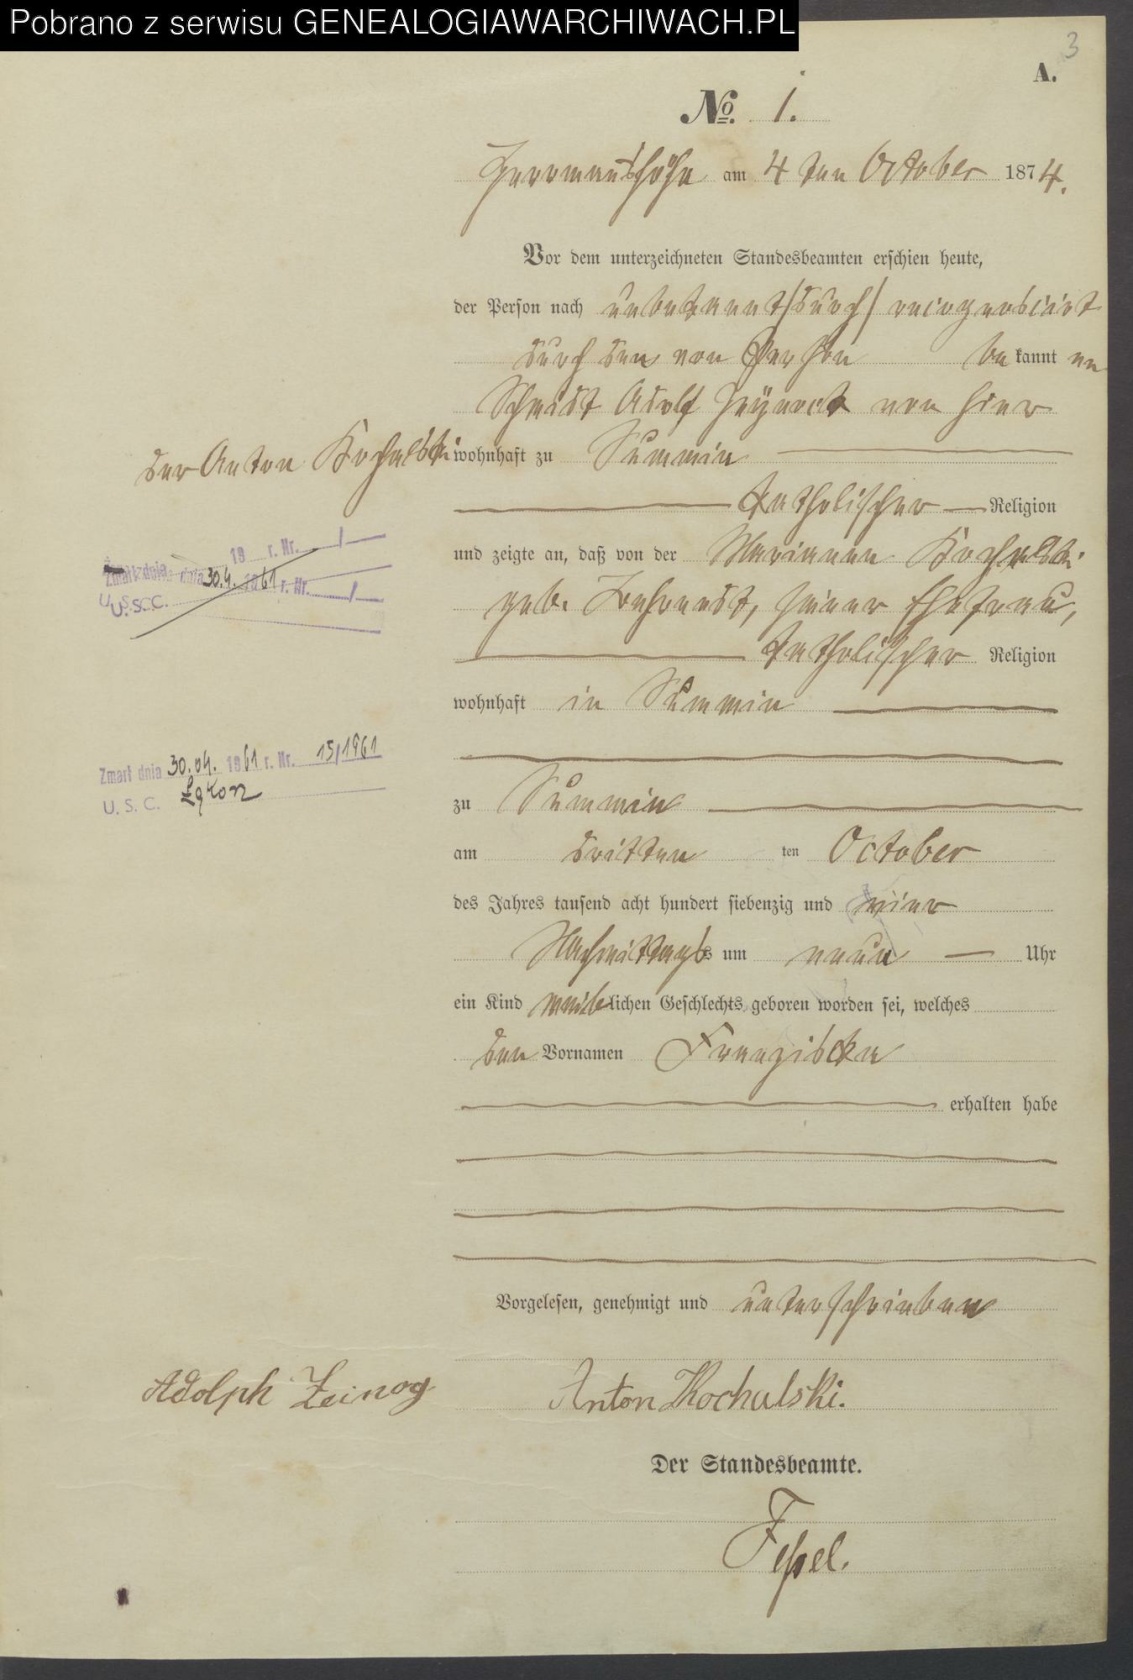 Pobrano z serwisu GENEALOGIAWARCHIWACH.PL
3
A.
No. 1.
Herrmannshöhe am 4 ten October 1874.
Vor dem unterzeichneten Standesbeamten erschien heute,
der Person nach unbekannt/durch/ recognoscirt
durch den von Person bekannten
Adolf von hier
der Anton Kochalski wohnhaft zu Summin
katholischer Religion
und zeigte an, daß von der Marianna Kochalski
geb. seiner Ehefrau,
katholischer Religion
wohnhaft in Summin
zu Summin
am dritten ten October
des Jahres tausend acht hundert siebenzig und vier
Nachmittags um neun Uhr
ein Kind weiblichen Geschlechts geboren worden sei, welches
den Vornamen Franziska
erhalten habe
Zmarł dnia 30.4. 1961 r. Nr. /
U. S. C.
Zmarł dnia 30.04. 1961 r. Nr. 15/1961
U. S. C. Łąkorz
Vorgelesen, genehmigt und unterschrieben
Adolph Anton Kochulski.
Der Standesbeamte.